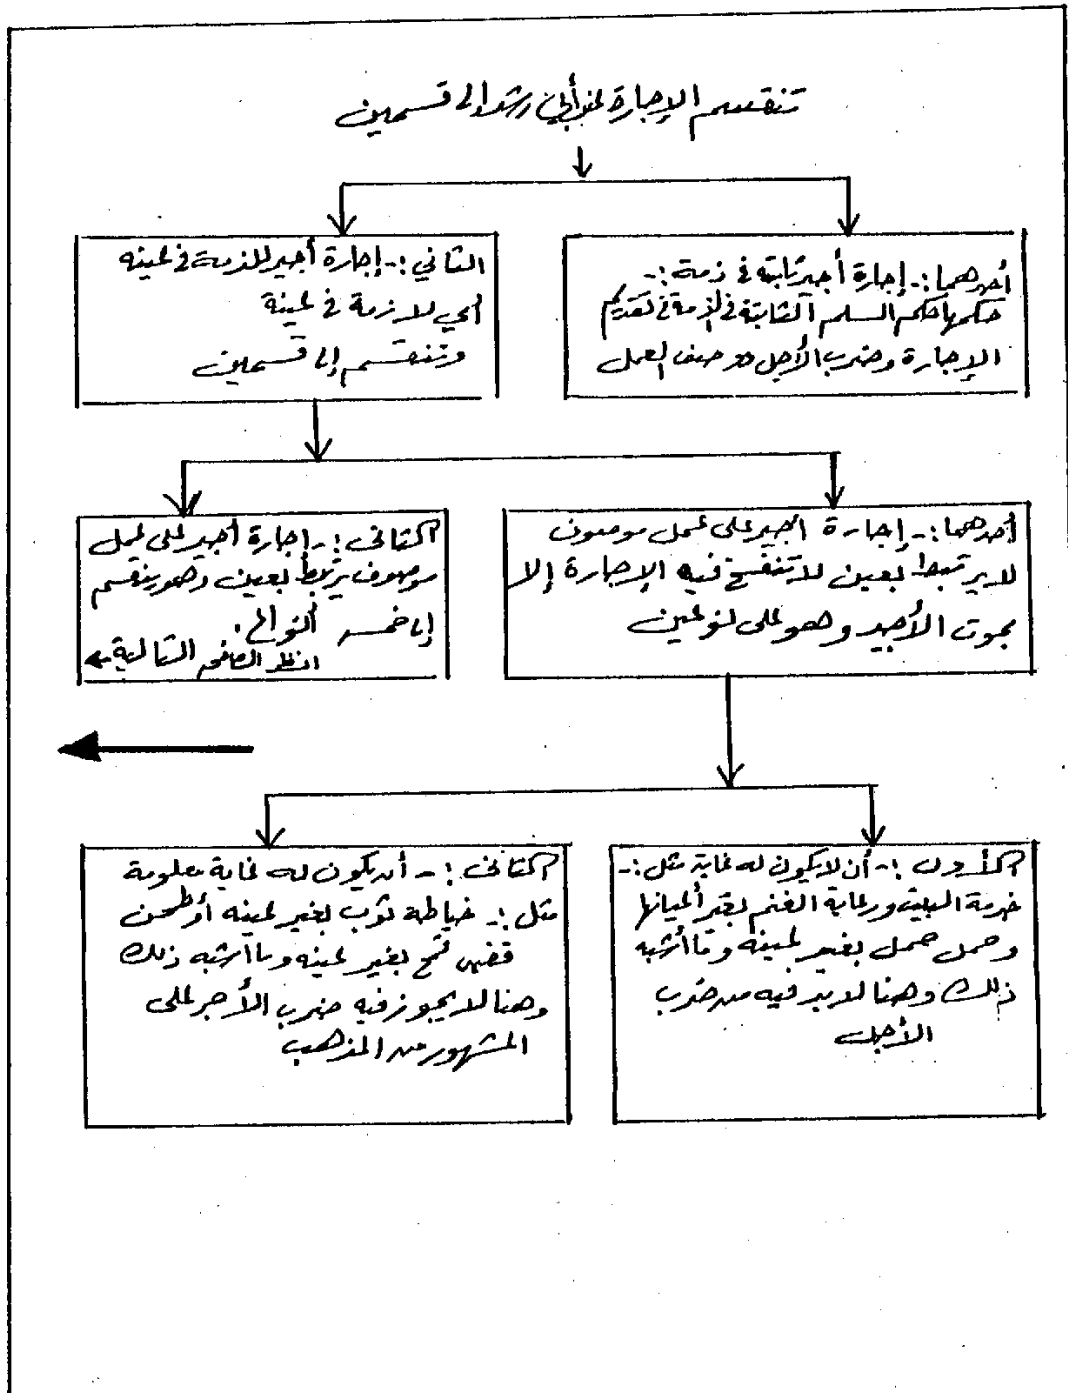 تنقسم الإجارة عند ابن رشد إلى قسمين
أحدهما :- إجارة أجير ثابتة في ذمة :-
حكمها حكم السلم الثابتة في الذمة في تقديم
الإجارة وضرب الأجل ووصف العمل
الثاني :- إجارة أجير للزمة في عينه
أي لازمة في عينة
وتنقسم إلى قسمين
أحدهما :- إجارة أجير على عمل موصوف
لا يرتبط بعين لا تنفسخ فيه الإجارة إلا
بموت الأجير وهو على نوعين
الثاني :- إجارة أجير على عمل
موصوف يرتبط بعين وهو ينقسم
إلى خمسة أنواع .
انظر الصفحة التالية ←
الأول :- أن لا يكون له غاية مثل :-
خدمة البيت ورعاية الغنم بغير أعيانها
وحمل حمل بغير عينه وما أشبه
ذلك وهنا لابد فيه من ضرب
الأجل
الثاني :- أن يكون له غاية معلومة
مثل :- خياطة ثوب بغير عينه أو طحن
قمح بغير عينه وما أشبه ذلك
وهنا لا يجوز فيه ضرب الأجر على
المشهور من المذهب